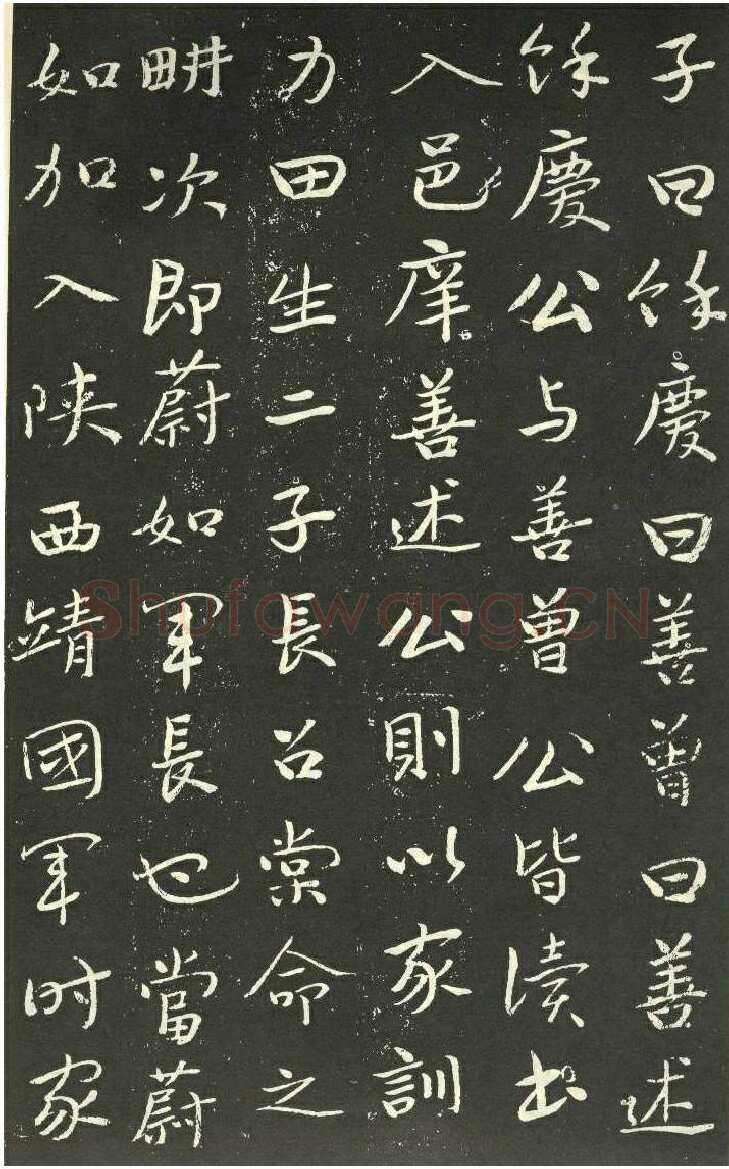 子曰餘慶曰善曽曰善述
餘慶公与善曽公皆讀書
入邑庠善述公則以家訓
力田生二子長召棠命之
畊次即蔚如軍長也當蔚
如加入陕西靖國軍时家
Shufawang.CN